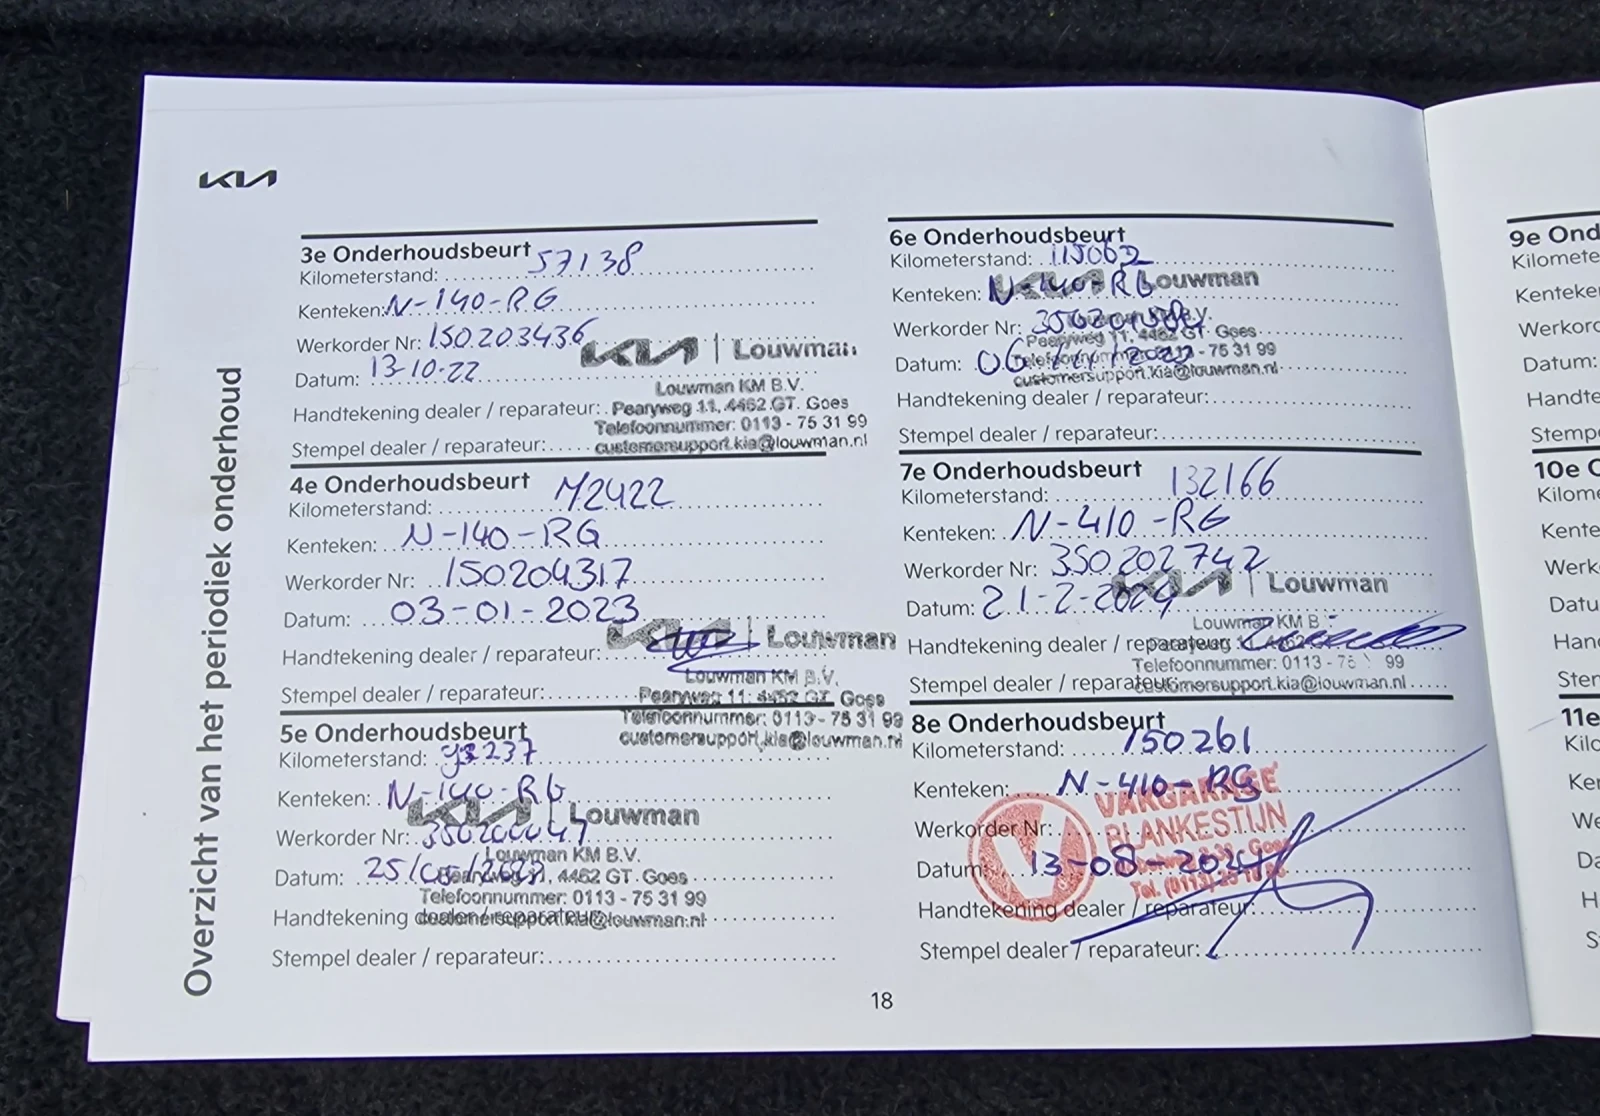 KIA
Overzicht van het periodiek onderhoud
3e Onderhoudsbeurt
Kilometerstand: 57138
Kenteken: N-140-RG
Werkorder Nr: 150203436
Datum: 13-10-22
KIA | Louwman
Louwman KM B.V.
Handtekening dealer / reparateur: Pearyweg 11, 4462 GT. Goes
Telefoonnummer: 0113 - 75 31 99
Stempel dealer / reparateur: customersupport.kia@louwman.nl
4e Onderhoudsbeurt
Kilometerstand: 72422
Kenteken: N-140-RG
Werkorder Nr: 150204317
Datum: 03-01-2023
KIA | Louwman
Handtekening dealer / reparateur:
Louwman KM B.V.
Stempel dealer / reparateur: Pearyweg 11, 4462 GT. Goes
Telefoonnummer: 0113 - 75 31 99
customersupport.kia@louwman.nl
5e Onderhoudsbeurt
Kilometerstand: 93237
Kenteken: N-140-RG
KIA | Louwman
Werkorder Nr:
Louwman KM B.V.
Datum: 25/
4462 GT. Goes
Telefoonnummer: 0113 - 75 31 99
Handtekening dealer / reparateur:
customersupport.kia@louwman.nl
Stempel dealer / reparateur:
6e Onderhoudsbeurt
Kilometerstand: 115062
Kenteken: N-140-RG
KIA Louwman
Werkorder Nr:
Pearyweg 11, 4462 GT. Goes
Datum: 06
Telefoonnummer - 75 31 99
customersupport.kia@louwman.nl
Handtekening dealer / reparateur:
Stempel dealer / reparateur:
7e Onderhoudsbeurt
Kilometerstand: 132166
Kenteken: N-410-RG
Werkorder Nr: 350202742
KIA | Louwman
Datum: 21-2-2024
Louwman KM B
Handtekening dealer / reparateur:
Telefoonnummer: 0113 - 75 99
Stempel dealer / reparateur: customersupport.kia@louwman.nl
8e Onderhoudsbeurt
Kilometerstand: 150261
Kenteken: N-410-RG
VAKGARAGE
Werkorder Nr:
BLANKESTIJN
Datum: 13-08-2024
Goes
Tel. (0113)
Handtekening dealer / reparateur:
Stempel dealer / reparateur:
18
9e Ond
Kilomete
Kenteke
Werkorc
Datum:
Handte
Stemp
10e O
Kilom
Kente
Werk
Datu
Han
Ster
11e
Kilo
Ke
We
Da
H
S